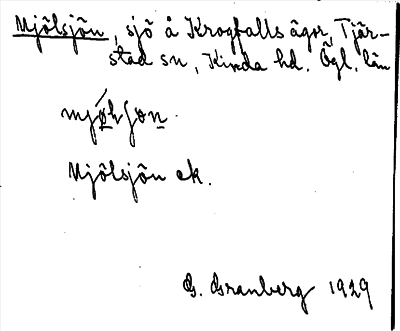 Mjölsjön, sjö å Krogfalls ägor, Tjär-
stad sn, Kinda hd. Ögl. län
Mjölsjön ek.
G. Granberg 1929